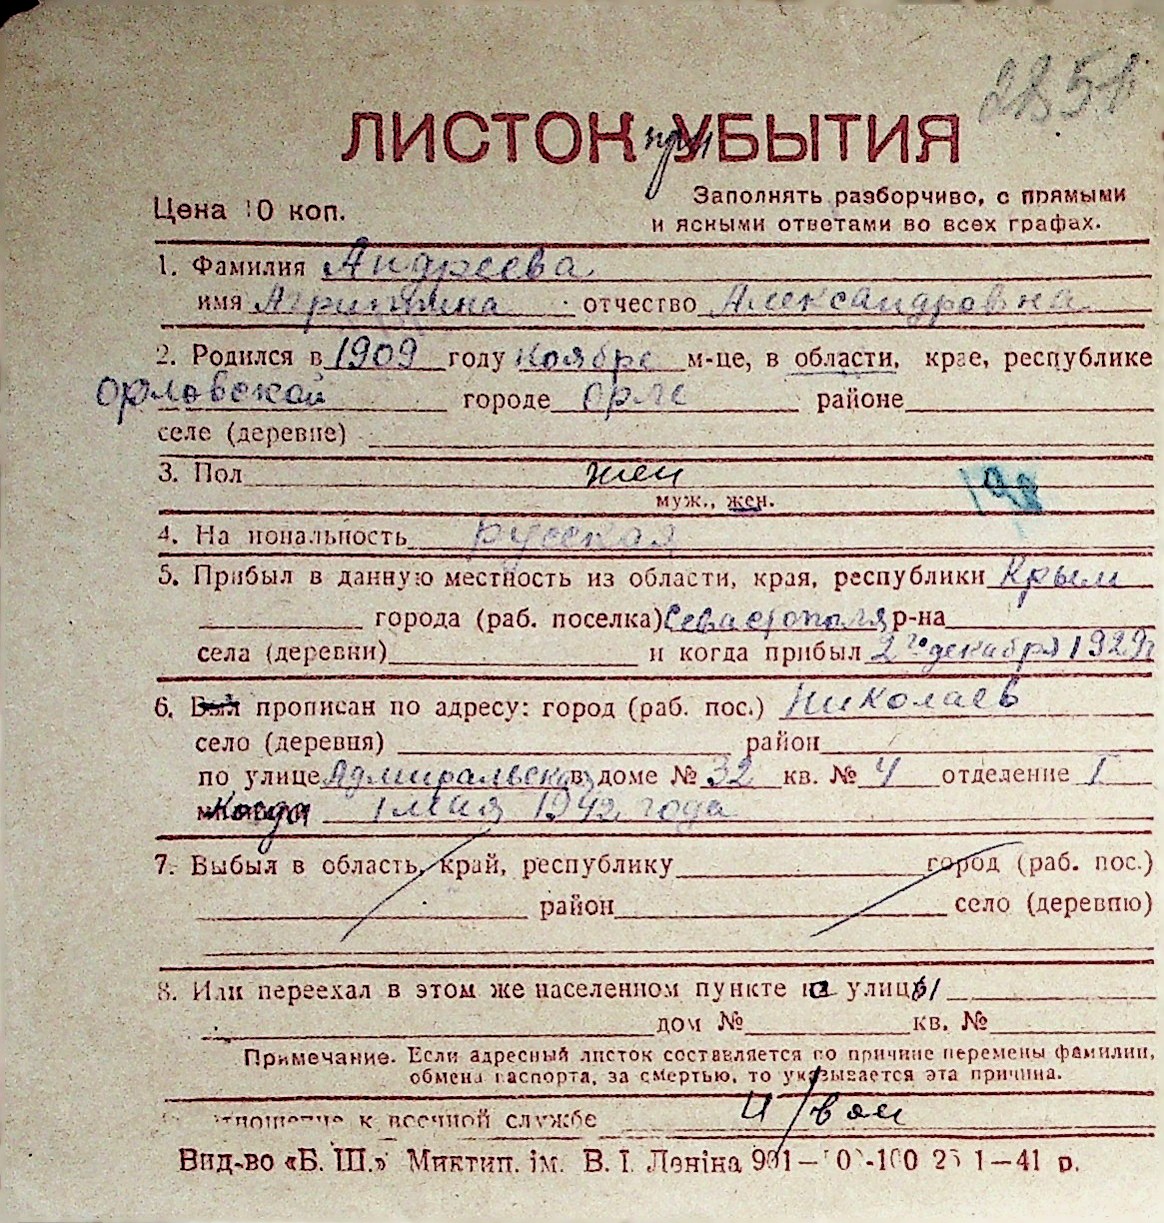 2851
ЛИСТОК при УБЫТИЯ
Цена 10 коп.
Заполнять разборчиво, с прямыми
и ясными ответами во всех графах.
1. Фамилия Андреева
имя Агриппина отчество Александровна
2. Родился в 1909 году ноябре м-це, в области, крае, республике
Орловской городе Орле районе
селе (деревне)
3. Пол жен
муж., жен.
4. На иональность русская
5. Прибыл в данную местность из области, края, республики Крым
города (раб. поселка) Севастополя р-на
села (деревни) и когда прибыл 2го декабря 1929г
6. Был прописан по адресу: город (раб. пос.) Николаев
село (деревня) район
по улице Адмиральской в доме № 32 кв. № 4 отделение I
Когда 1 мая 1942 года
7. Выбыл в область, край, республику город (раб. пос.)
район село (деревню)
8. Или переехал в этом же населенном пункте на улицы
дом № кв. №
Примечание. Если адресный листок составляется по причине перемены фамилии,
обмена паспорта, за смертью, то указывается эта причина.
тношение к военной службе
Вид-во «Б. Ш.» Миктип. ім. В. І. Леніна 1—41 р.